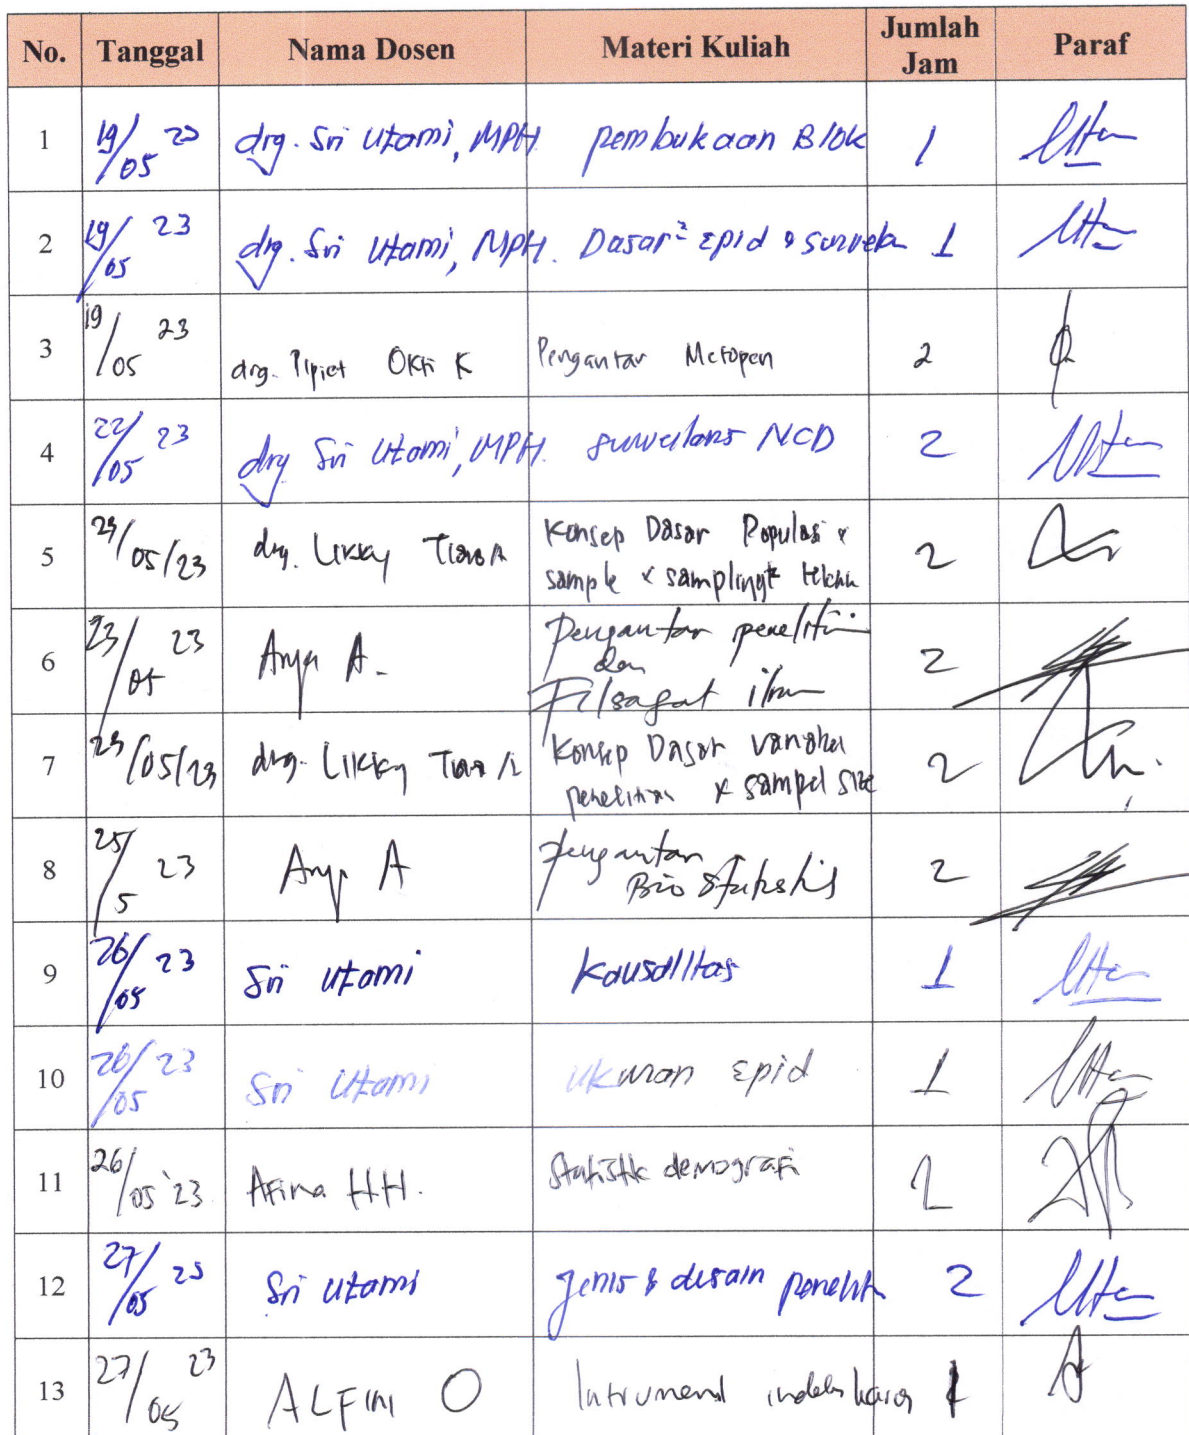 No. Tanggal Nama Dosen Materi Kuliah Jumlah Jam Paraf
1 19/05 23 drg. Sri Utami, MPH. pembukaan Blok 1
2 19/05 23 drg. Sri Utami, MPH. Dasar² Epid & surveilan 1
3 19/05 23 drg. Pipiet Okti K Pengantar Metopen 2
4 22/05 23 drg Sri Utami, MPH. surveilans NCD 2
5 /05/23 drg. Likky Tiara A Konsep Dasar Populasi &
sample & sampling 2
6 23/05 23 Arya A. Pengantar penelitian
dan
Filsafat ilmu 2
7 /05/23 drg. Likky Tiara A Konsep Dasar variabel
penelitian & sampel size 2
8 25/5 23 Arya A Pengantar
Bio Statistis 2
9 26/05 23 Sri Utami Kausalitas 1
10 26/05 23 Sri Utami ukuran Epid 1
11 26/05 '23 Afina HH. Statistik demografi 2
12 27/05 23 Sri Utami Jenis & desain penelit 2
13 27/05 23 ALFINI O Intrumend indeks karies